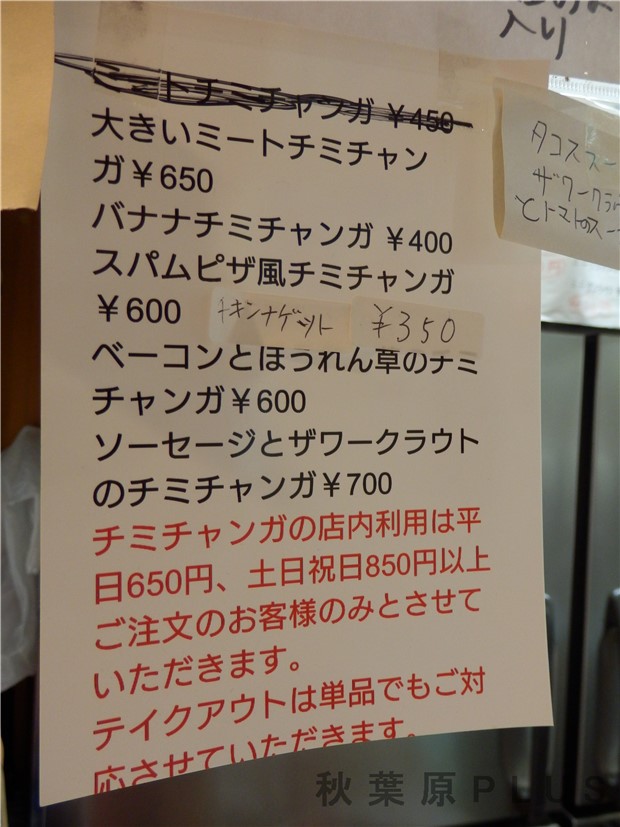 入り
ミートチミチャンガ ¥450
大きいミートチミチャン
ガ¥650
バナナチミチャンガ ¥400
スパムピザ風チミチャンガ
¥600
チキンナゲット ¥350
ベーコンとほうれん草のチミ
チャンガ¥600
ソーセージとザワークラウト
のチミチャンガ¥700
チミチャンガの店内利用は平
日650円、土日祝日850円以上
ご注文のお客様のみとさせて
いただきます。
テイクアウトは単品でもご対
応させていただきます。
タコスス
ザワークラ
とトマトのス
秋葉原PLUS